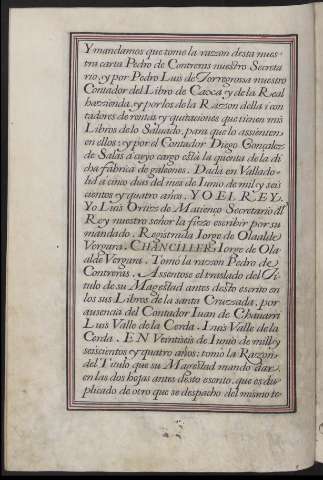 Y mandamos que tome la razzon desta nues-
tra carta Pedro de Contreras nuestro Secreta
rio, y por Pedro Luis de Torregrosa nuestro
Contador del Libro de Caxa y de la Real
hazienda, y por los de la Razzon della i con
tadores de rentas y quitaciones que tienen mis
Libros de lo Saluado, para que lo assienten
en ellos: y por el Contador Diego Gonzalez
de Salas a cuyo cargo està la quenta de la di
cha fabrica de galeones. Dada en Vallado-
lid a cinco dias del mes de Iunio de mil y seis
cientos y quatro años. YO EL REY.
Yo Luis Ortiz de Matienço Secretario del
Rey nuestro señor la fize escribir por su
mandado. Registrada Iorge de Olaalde
Vergara. CHANCILLER Iorge de Ola
alde Vergara. Tomò la razon Pedro de
Contreras. Assentose el traslado del Ti-
tulo de su Magestad antes desto escrito en
los sus Libros de la santa Cruzzada, por
ausencia del Contador Iuan de Chauarri
Luis Valle de la Cerda. Luis Valle de la
Cerda. EN Veintiseis de Iunio de mill y
seiscientos y quatro años: tomò la Razzon
del Titulo que su Magestad mando dar
en las dos hojas antes desto escrito, que es du
plicado de otro que se despacho del mismo te-